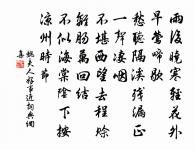 雨後曉寒輕花外
早鶯啼歇
愁聽隔溪殘漏正
一聲凄咽
不堪西望去程賒
離腸萬回結
不似海棠陰下按
涼州時節
魏夫人好事近詞典網
喜